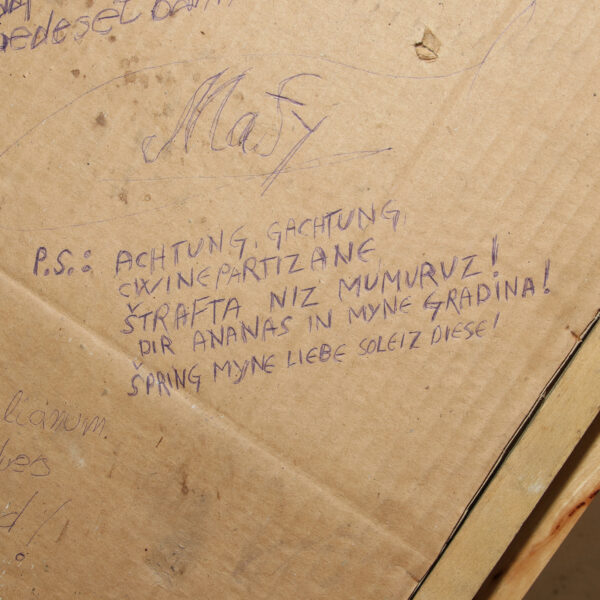 bedeset
Mafy
P.S.: ACHTUNG, GACHTUNG,
CWINEPARTIZANE
ŠTRAFTA NIZ MUMURUZ!
DIR ANANAS IN MYNE GRADINA!
ŠPRING MYNE LIEBE SOLEIZ DIESE!